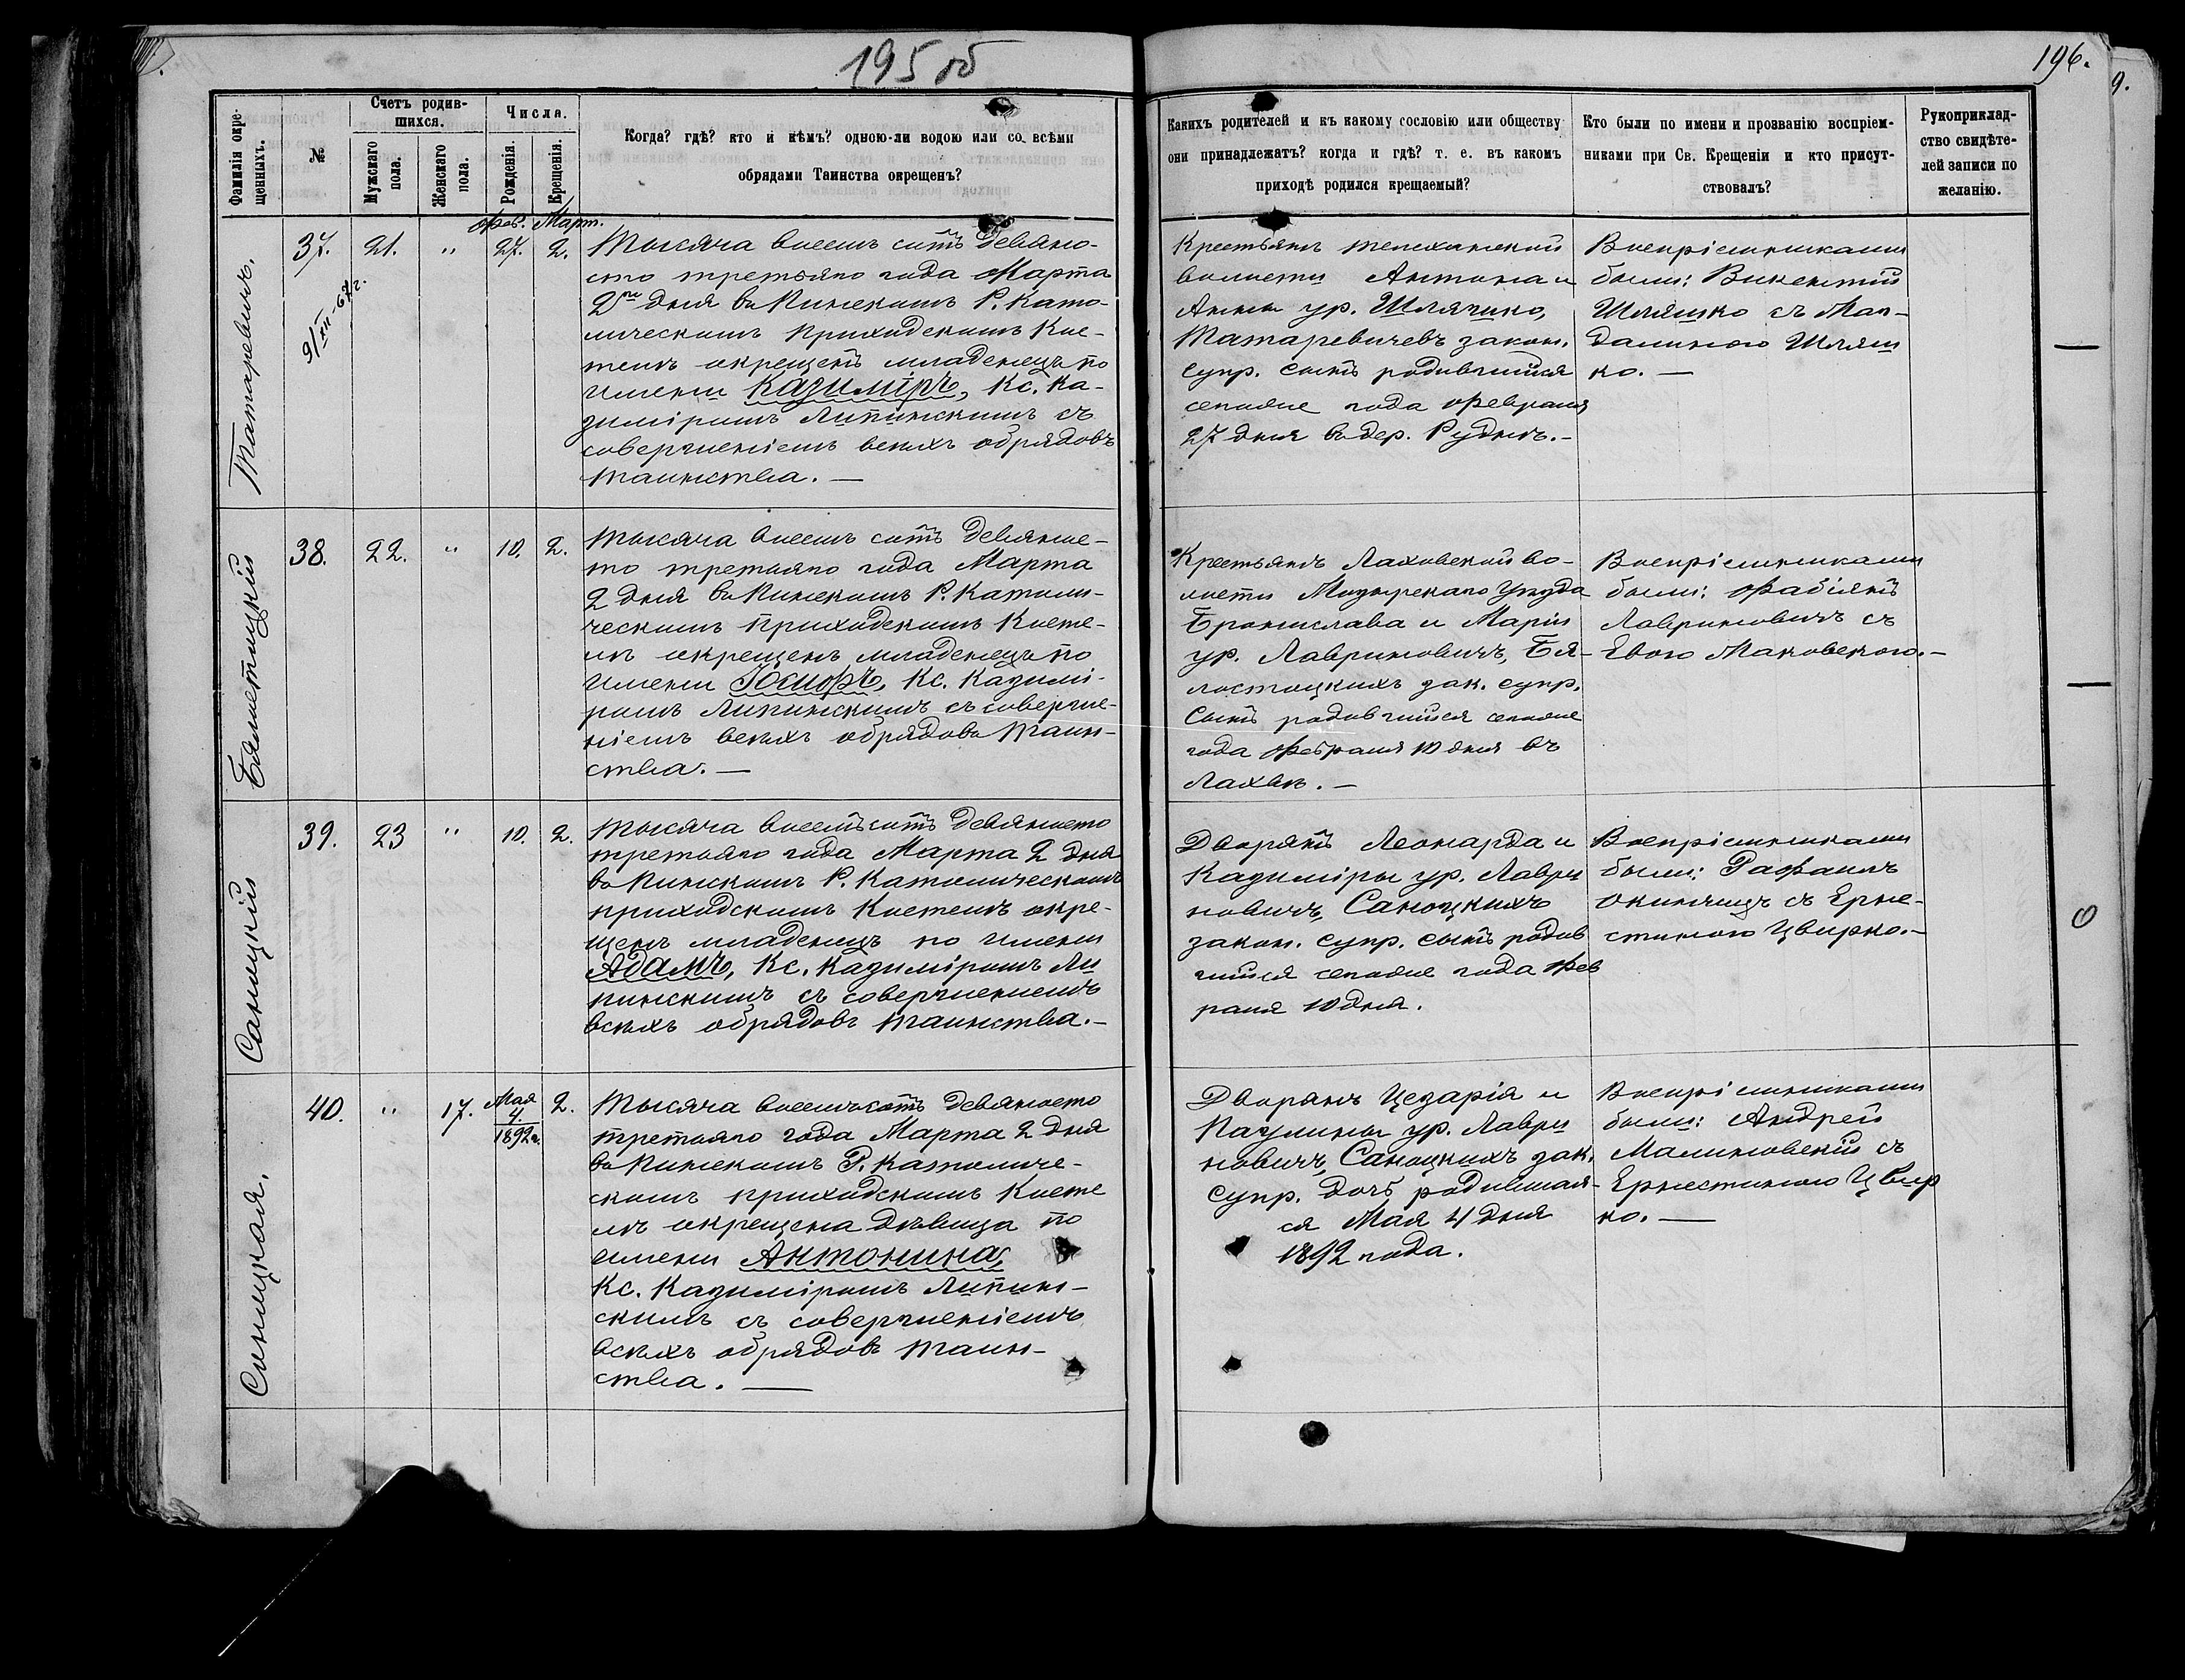 195 об
196.
9.
Фамилія окре-
щенныхъ.
№
Счетъ родив-
шихся.
Мужскаго
пола.
Женскаго
пола.
Числа.
Рожденія.
Крещенія.
Когда? гдѣ? кто и кѣмъ? одною-ли водою или со всѣми
обрядами Таинства окрещенъ?
Какихъ родителей и къ какому сословію или обществу
они принадлежатъ? когда и гдѣ? т. е. въ какомъ
приходѣ родился крещаемый?
Кто были по имени и прозванію воспріем-
никами при Св. Крещеніи и кто присут-
ствовалъ?
Рукоприклад-
ство свидѣте-
лей записи по
желанію.
Татаревичъ.
37.
21.
"
Фев.
27.
Март.
2.
Тысяча восемь сотъ девяно-
сто третьяго года Марта
2го дня въ Пинскомъ Р. Като-
лическомъ приходскомъ Кос-
телѣ окрещенъ младенецъ по
имени Казиміръ, Кс. Ка-
зиміромъ Липинскимъ съ
совершеніемъ всѣхъ обрядовъ
таинства. —
Крестьянъ Телеханской
волости Антона и
Анны ур. Шлячико,
Татаревичевъ закон.
супр. сынъ родившійся
сегоже года Февраля
27 дня въ дер. Руднѣ. –
Воспріемниками
были: Викентій
Шляшко съ Маг-
далиною Шляш
ко. —
Бялостоцкій
38.
22.
"
10.
2.
Тысяча восемь сотъ девянос-
то третьяго года Марта
2 дня въ Пинскомъ Р. Католи-
ческомъ приходскомъ Косте-
лѣ окрещенъ младенецъ по
имени Юсифъ, Кс. Казимі-
ромъ Липинскимъ съ соверше-
ніемъ всѣхъ обрядовъ таин-
ства. —
Крестьянъ Лаховской во-
лости Мозырскаго Уѣзда
Бронислава и Маріи
ур. Лавриновичъ, Бя-
лостоцкихъ зак. супр.
сынъ родившійся сегоже
года Февраля 10 дня въ
Лахвѣ. –
Воспріемниками
были: Фабіянъ
Лавриновичъ съ
Евою Маковскою. –
Саноцкій
39.
23
"
10.
2.
Тысяча восемьсотъ девяносто
третьяго года Марта 2 дня
въ Пинскомъ Р. Католическомъ
приходскомъ Костелѣ окре-
щенъ младенецъ по имени
Адамъ, Кс. Казиміромъ Ли
пинскимъ съ совершеніемъ
всѣхъ обрядовъ таинства. –
Дворянъ Леонарда и
Казиміры ур. Лаври
новичъ, Саноцкихъ
закон. супр. сынъ родив
шійся сегоже года Фев
раля 10 дня.
Воспріемниками
были: Рафаилъ
Окинчицъ съ Ерне-
стиною Цвирко. –
Саноцкая.
40.
"
17.
Мая
4.
1892 г.
2.
Тысяча восемьсотъ девяносто
третьяго года Марта 2 дня
въ Пинскомъ Р. Католиче-
скомъ приходскомъ Косте
лѣ окрещена дѣвица по
имени Антонина,
Кс. Казиміромъ Липин-
скимъ съ совершеніемъ
всѣхъ обрядовъ таин-
ства. —
Дворянъ Цезарія и
Паулины ур. Лаври
новичъ, Саноцкихъ зак.
супр. дочь, родившая-
ся Мая 4 дня
1892 года.
Воспріемниками
были: Андрей
Малиновскій съ
Ернестиною Цвир
ко. —